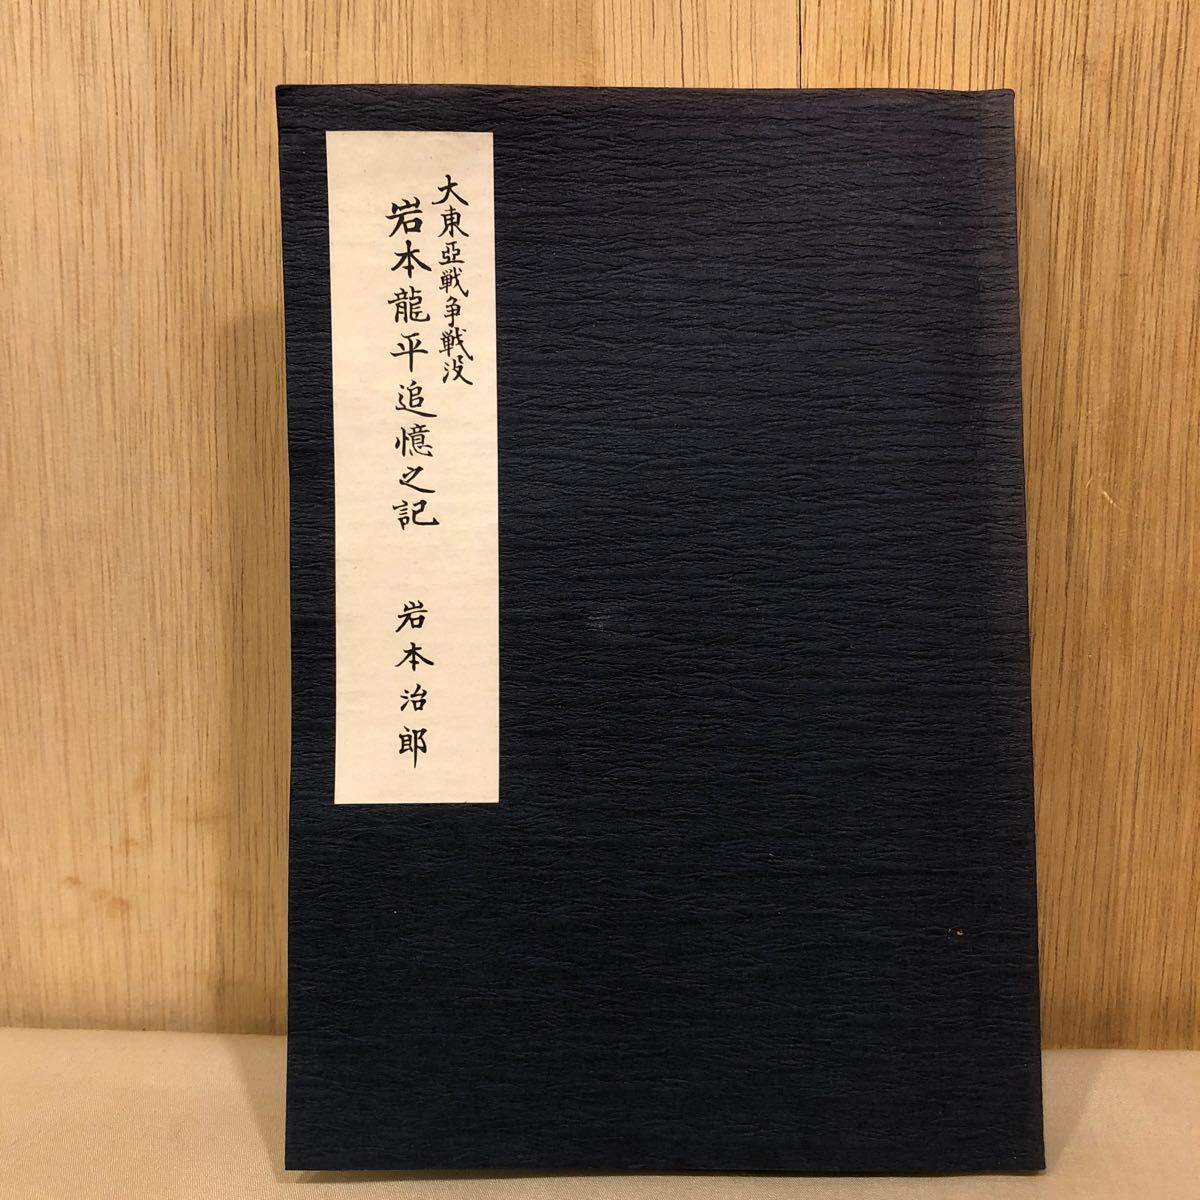 大東亞戦争戦没
岩本龍平追憶之記
岩本治郎